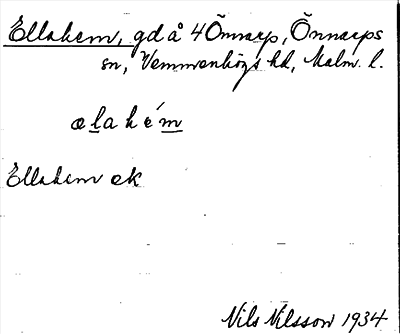 Ellahem, gd å 4 Önnarp, Önnarps
sn, Vemmenhögs hd, Malm. l.
ælahém
Ellahem ek
Nils Nilsson 1934